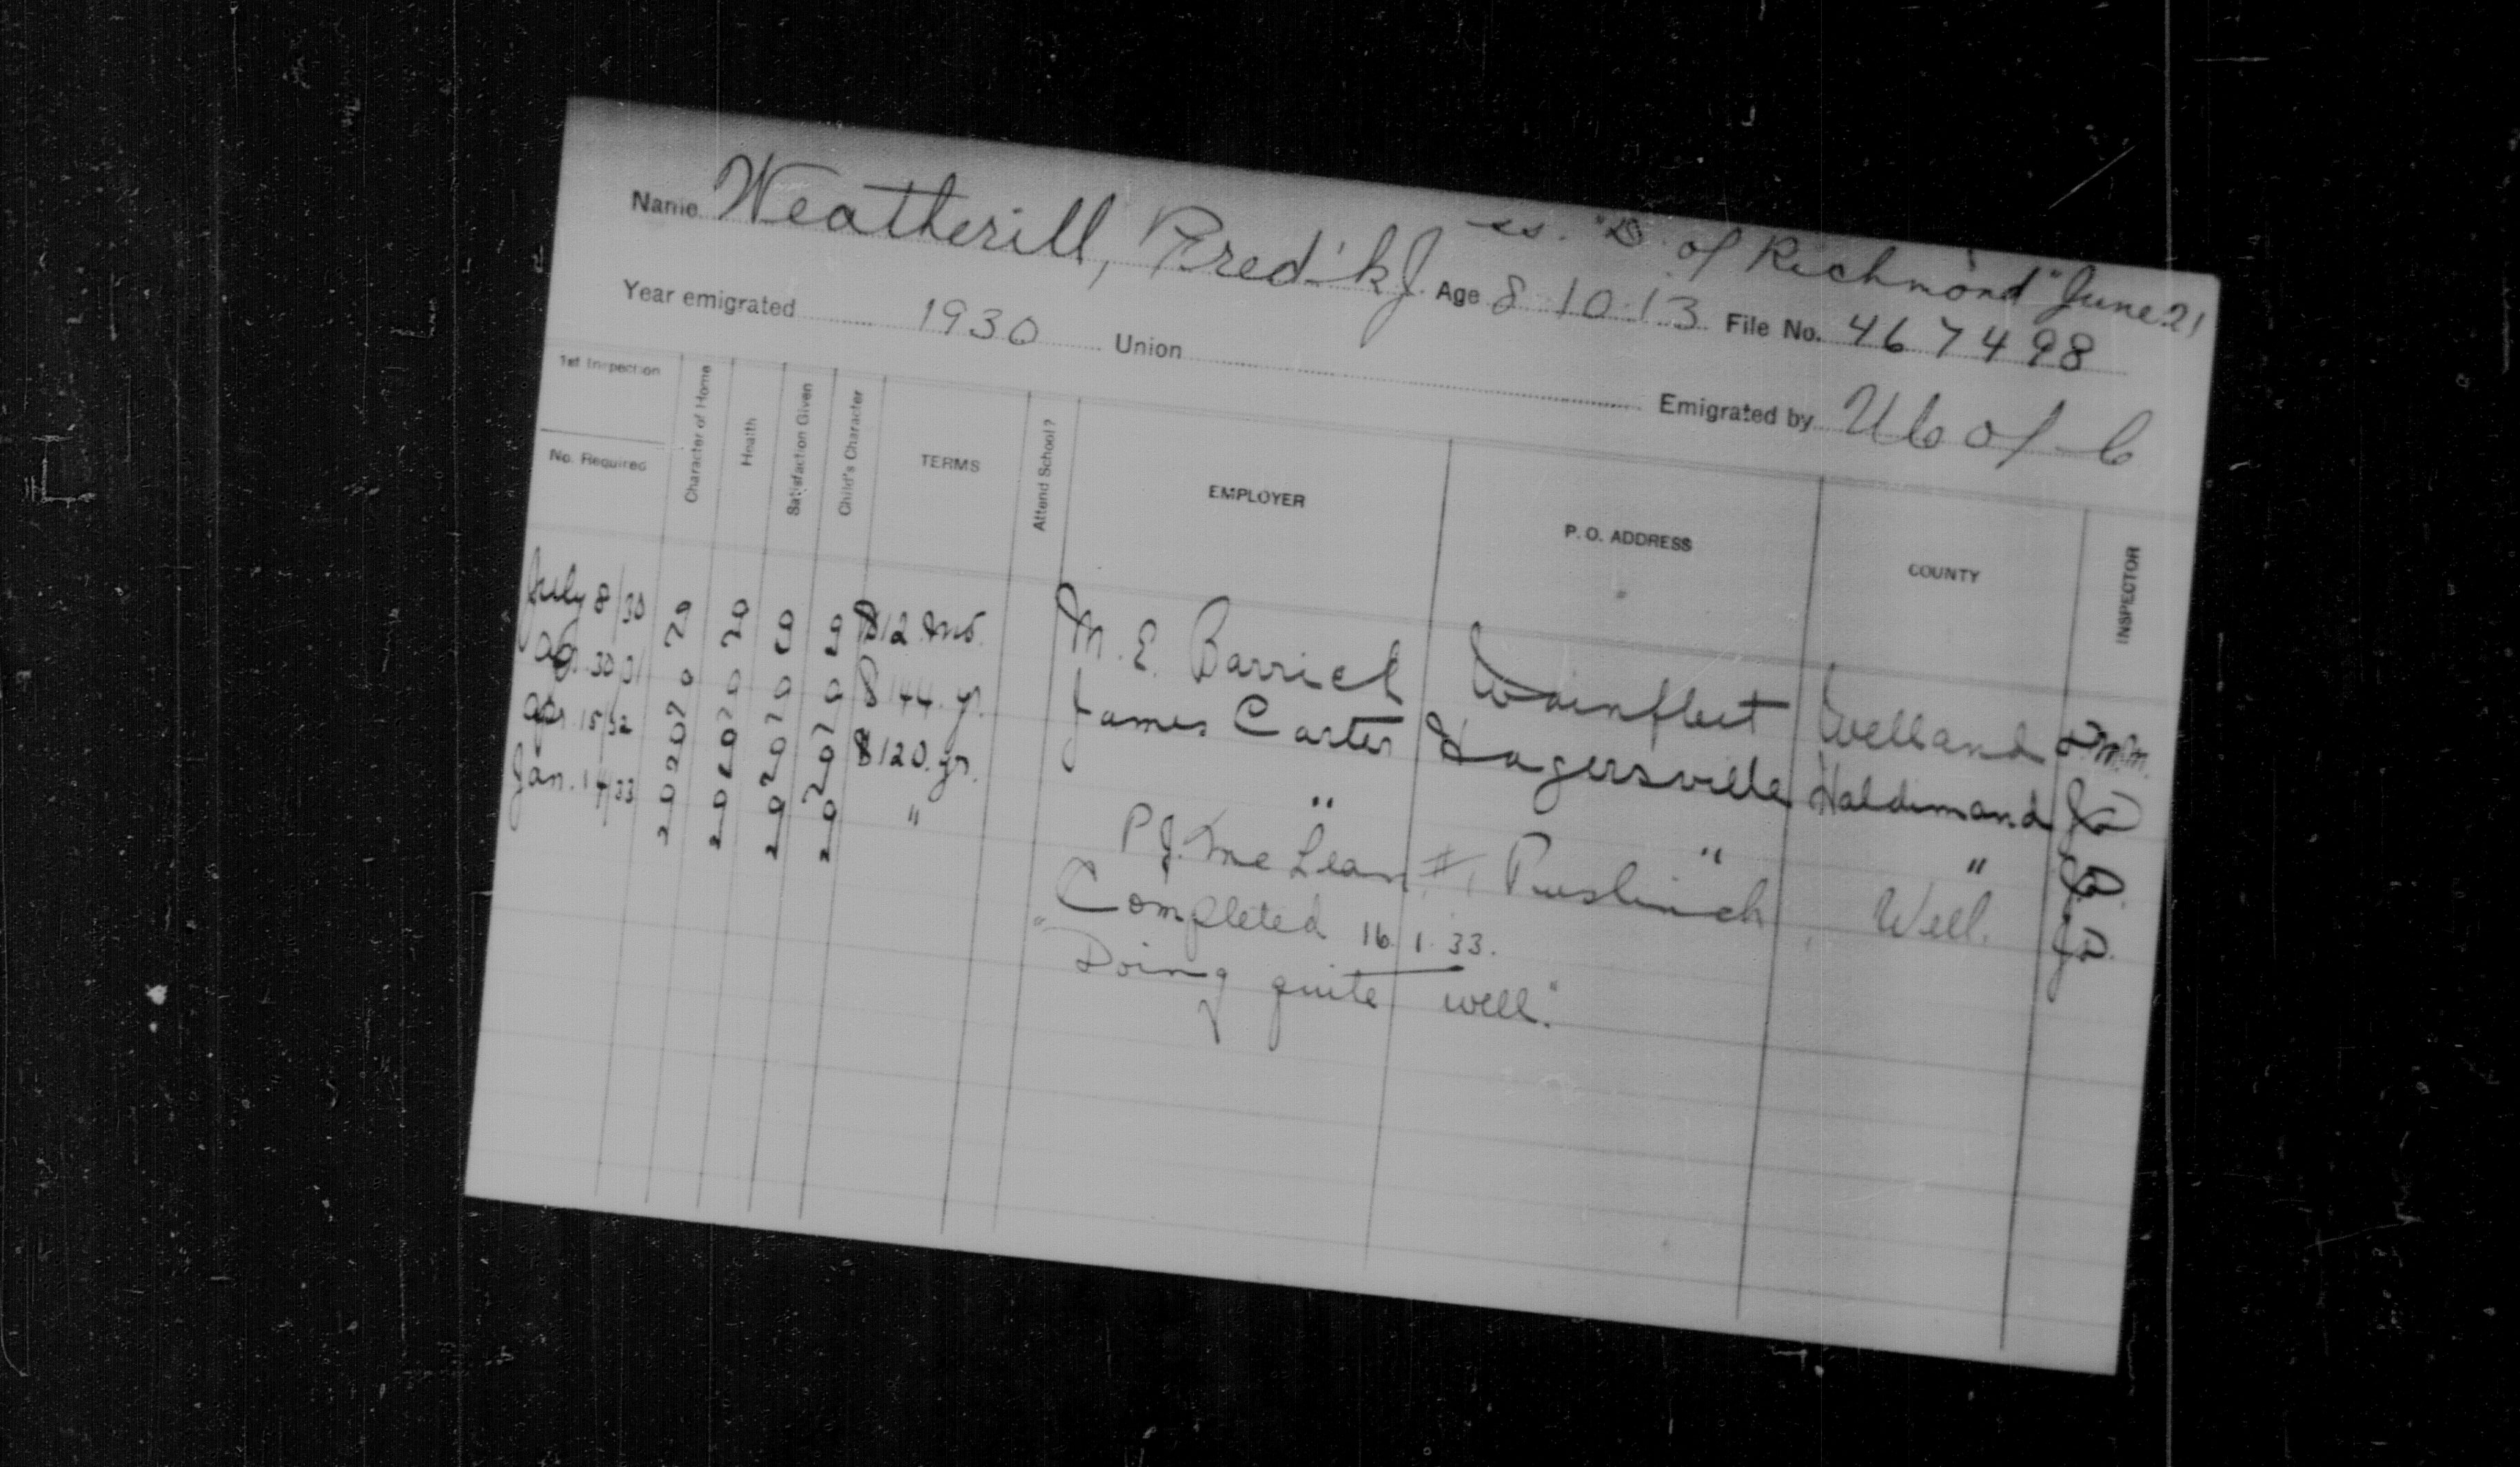 ss. "D. of Richmond" June 21
Name Weatherill, Fred'k J. Age 8.10.13 File No. 467498
Year emigrated 1930 Union Emigrated by U C of C
1st Inspection
No. Required
Character of Home
Health
Satisfaction Given
Child's Character
TERMS
Attend School?
EMPLOYER
P. O. ADDRESS
COUNTY
INSPECTOR
July 8/30 $12 mo. M. E. Barrick Wainfleet Welland
30/31 $144 yr. James Carter Hagersville Haldimand
Apr 15/32 $120 yr. " " "
Jan. 14/33 " P. J. McLean, #1, Puslinch, Well.
Completed 16.1.33.
"Doing quite well."